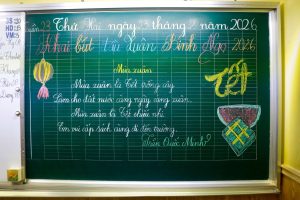 Thứ Hai ngày 23 tháng 2 năm 2026
Khai bút tân Xuân Bính Ngọ 2026
Mùa xuân
TẾT
Mùa xuân là Tết trồng cây
Làm cho đất nước càng ngày càng xuân.
Mùa xuân là Tết
Em vui cắp sách cung đi đến trường.
Trần Quốc Minh